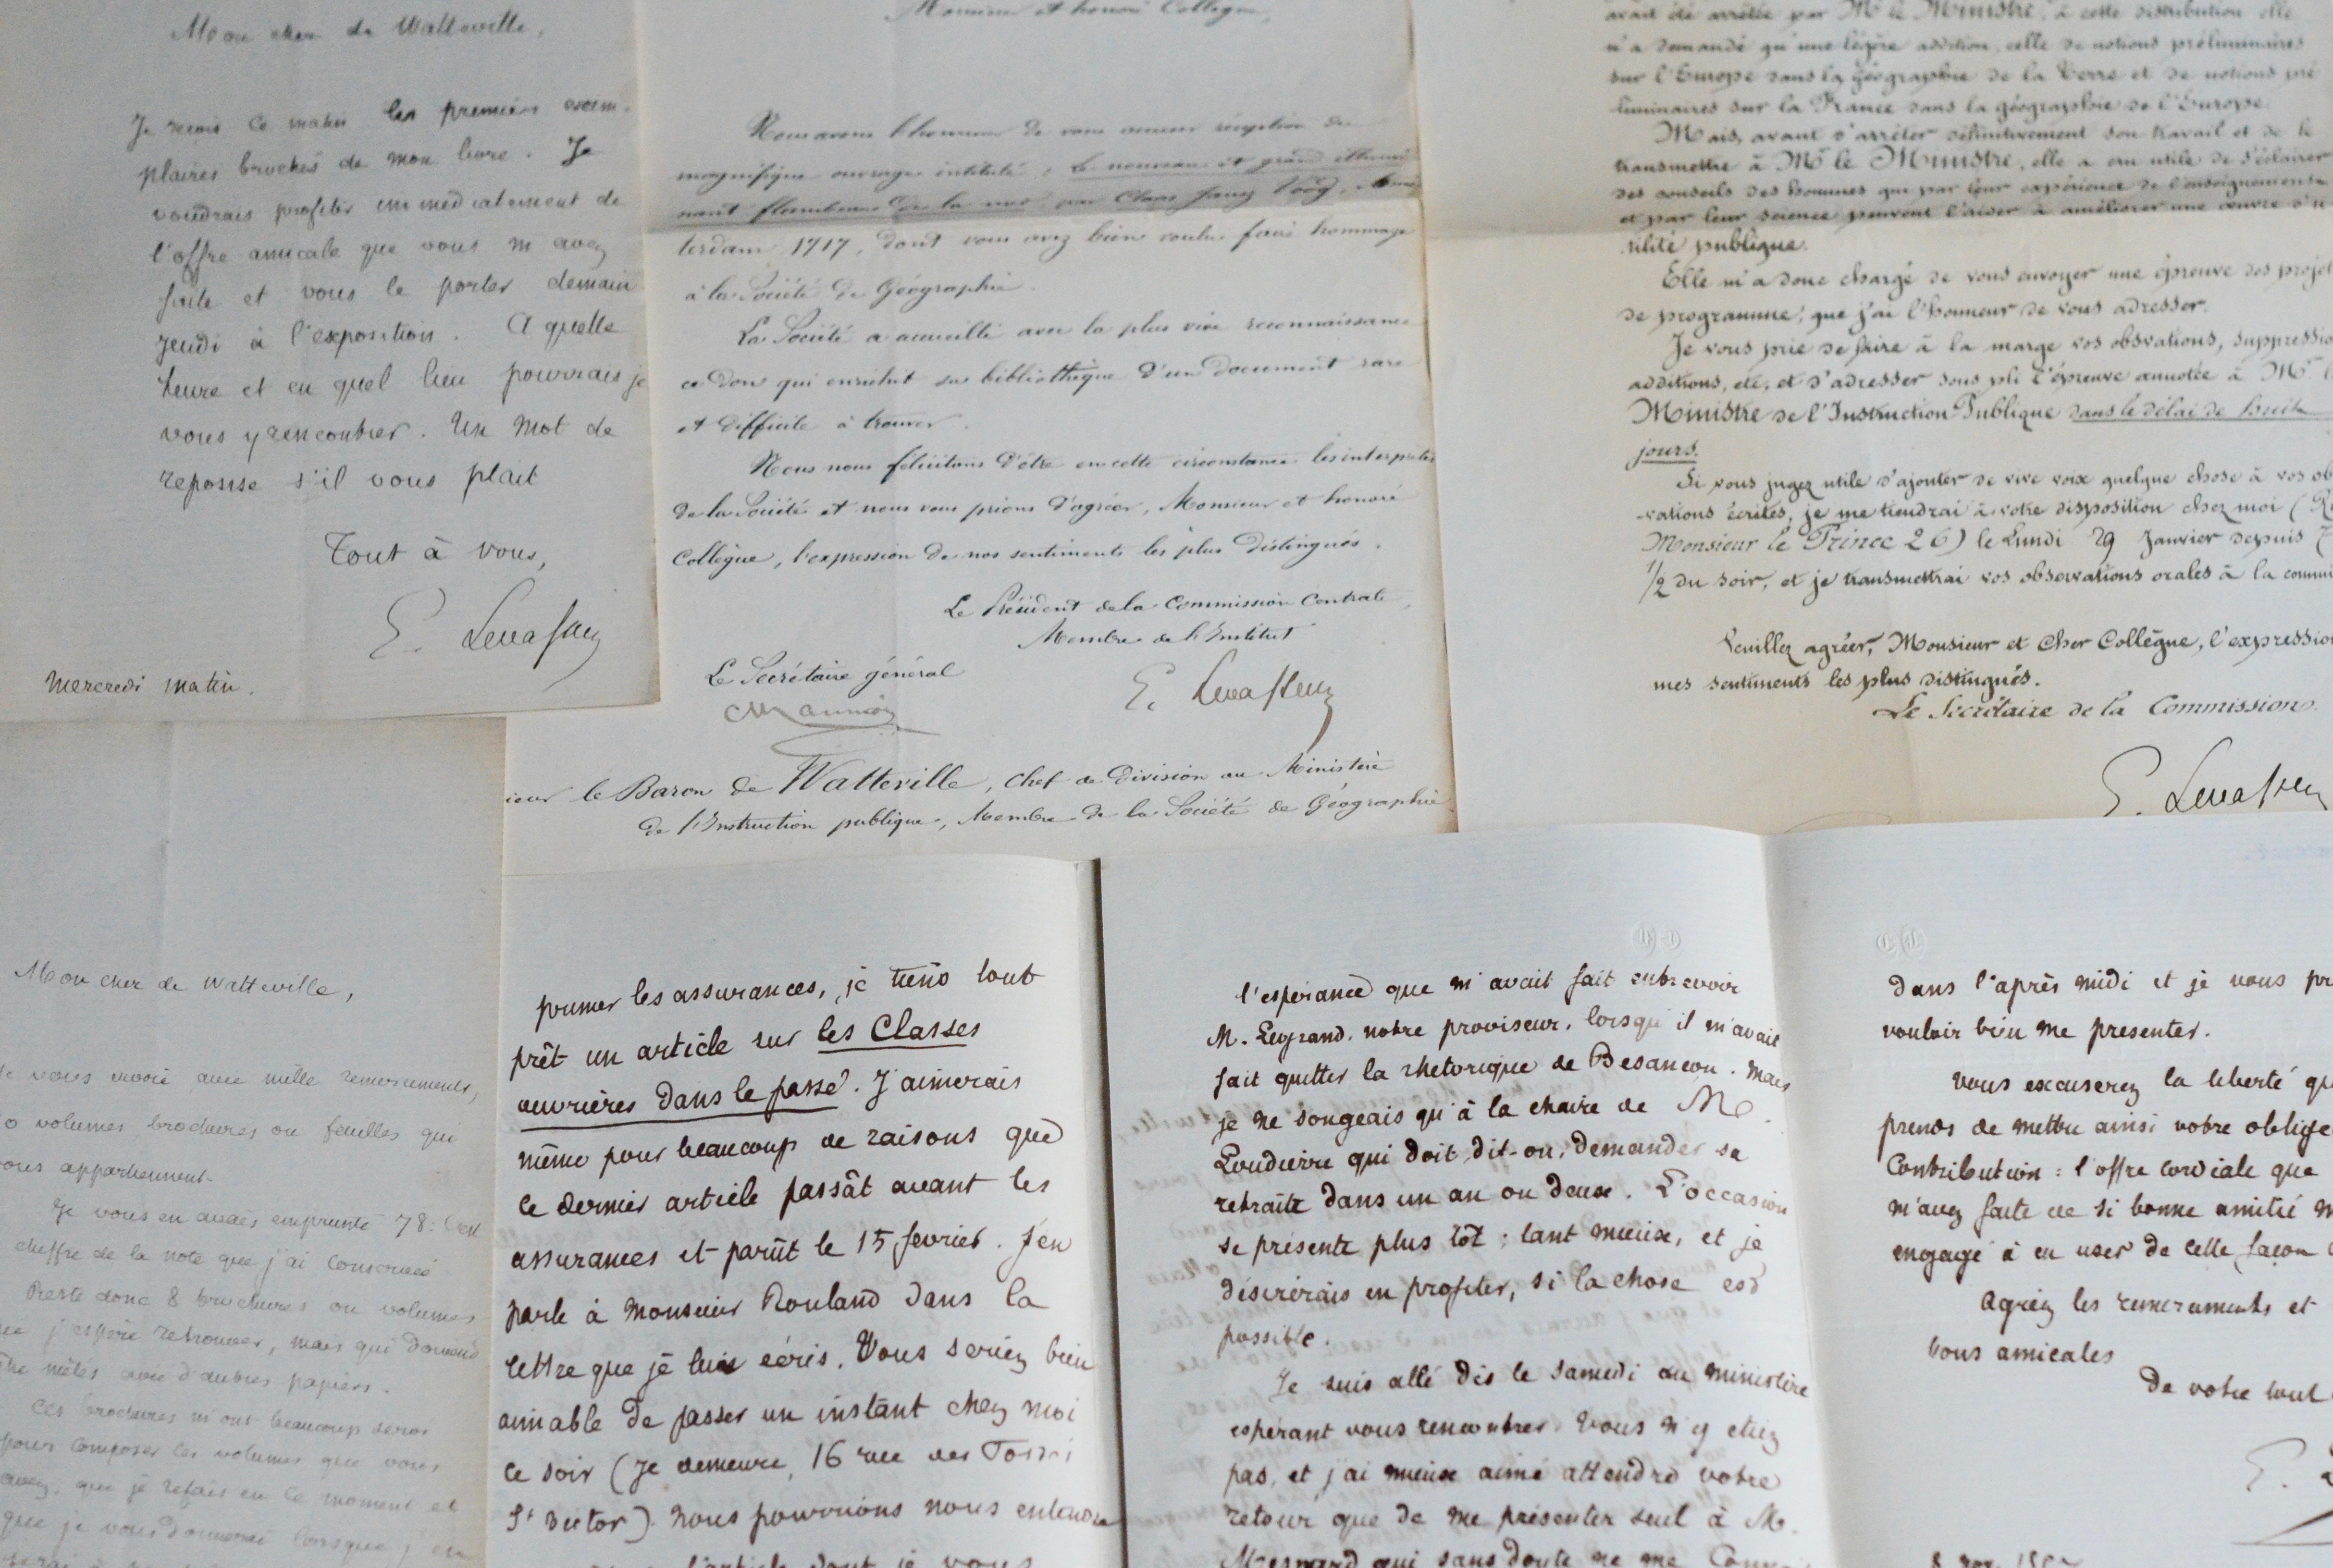 Mon cher de Watteville,
Je reçois ce matin les premiers exem-
plaires brochés de mon livre. Je
voudrais profiter immédiatement de
l'offre amicale que vous m'avez
faite et vous le porter demain
jeudi à l'exposition. A quelle
heure et en quel lieu pourrais je
vous y rencontrer. Un mot de
reponse s'il vous plait
Tout à vous,
E. Levasseur
Mercredi matin.
Monsieur et honoré Collègue,
Nous avons l'honneur de vous accuser réception du
magnifique ouvrage intitulé : Le nouveau et grand illumi
nant flambeau de la mer par Claas Jansz Voog,
terdam 1717, dont vous avez bien voulu faire hommage
à la Société de Géographie.
La Société a accueilli avec la plus vive reconnaissance
ce don qui enrichit sa bibliothèque d'un document rare
et difficile à trouver.
Nous nous félicitons d'être en cette circonstance les interprètes
de la Société et nous vous prions d'agréer, Monsieur et honoré
Collègue, l'expression de nos sentiments les plus distingués.
Le Président de la Commission Centrale,
Membre de l'Institut
Le Secrétaire général
CMaunoir
E. Levasseur
ieur le Baron de Watteville, Chef de Division au Ministère
de l'Instruction publique, Membre de la Société de Géographie
avait été arrêtée par Mr le Ministre, à cette distribution elle
n'a demandé qu'une légère addition, celle de notions préliminaires
sur l'Europe dans la géographie de la Terre et de notions pré
liminaires sur la France dans la géographie de l'Europe.
Mais, avant d'arrêter définitivement son travail et de le
transmettre à Mr le Ministre, elle a cru utile de s'éclairer
des conseils des hommes qui par leur expérience de l'enseignement
et par leur science peuvent l'aider à améliorer une œuvre d'u
tilité publique.
Elle m'a donc chargé de vous envoyer une épreuve des projet
de programme, que j'ai l'honneur de vous adresser.
Je vous prie de faire à la marge vos obsvations, suppressio
additions, etc, et d'adresser sous pli l'épreuve annotée à Mr l
Ministre de l'Instruction Publique dans le délai de huit
jours.
Si vous jugez utile d'ajouter de vive voix quelque chose à vos ob
vations écrites, je me tiendrai à votre disposition chez moi (R
Monsieur le Prince 26) le Lundi 29 Janvier depuis 7
1/2 du soir, et je transmettrai vos observations orales à la commi
Veuillez agréer, Monsieur et Cher Collègue, l'expressio
mes sentiments les plus distingués.
Le Secrétaire de la Commission.
E. Levasseur
Mon cher de Watteville,
Je vous envoie avec mille remerciements,
0 volumes brochures ou feuilles qui
vous appartiennent.
Je vous en avais emprunté 78: C'est
chiffre de la note que j'ai conservée
Reste donc 8 brochures ou volumes
que j'espère retrouver, mais qui doivent
être mêlés avec d'autres papiers.
Ces brochures m'ont beaucoup servi
pour composer les volumes que vous
avez, que je refais en ce moment et
que je vous donnerai lorsque j'en
primer les assurances, je tiens tout
prêt un article sur les Classes
ouvrières dans le passé. J'aimerais
même pour beaucoup de raisons que
ce dernier article passât avant les
assurances et parût le 15 février. J'en
parle à Monsieur Rouland dans la
lettre que je lui écris. Vous seriez bien
aimable de passer un instant chez moi
ce soir (Je demeure, 16 rue des Fossés
St Victor). Nous pourrions nous entendre
l'article dont je vous
l'espérance que m'avait fait entrevoir
M. Legrand, notre proviseur, lorsqu'il m'avait
fait quitter la rhétorique de Besançon. Mais
je ne songeais qu'à la chaire de M.
Loudierre qui doit, dit-on, demander sa
retraite dans un an ou deux. L'occasion
se présente plus tôt ; tant mieux, et je
désirerais en profiter, si la chose est
possible.
Je suis allé dès le samedi au ministère
espérant vous rencontrer. Vous n'y étiez
pas, et j'ai mieux aimé attendre votre
retour que de me présenter seul à M.
Mesnard qui sans doute ne me
dans l'après midi et je vous pr
vouloir bien me présenter.
Vous excuserez la liberté qu
prends de mettre ainsi votre oblige
Contribution : l'offre cordiale que
m'avez faite de si bonne amitié m
engagé à en user de cette façon
Agréez les remerciements et
tous amicales
De votre tout
E. L